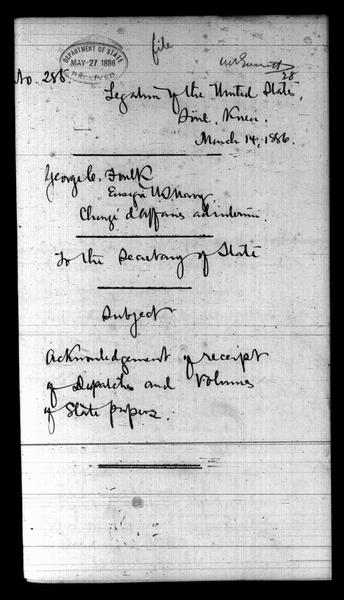 file
DEPARTMENT OF STATE
MAY 27 1886
RECEIVED
28
No. 286
Legation of the United States,
Söul, Korea.
March 14, 1886.
George C. Foulk
Ensign US Navy
Chargé d'Affaires ad interim.
To the Secretary of State
Subject
Acknowledgement of receipt
of Dispatches and Volumes
of State papers.